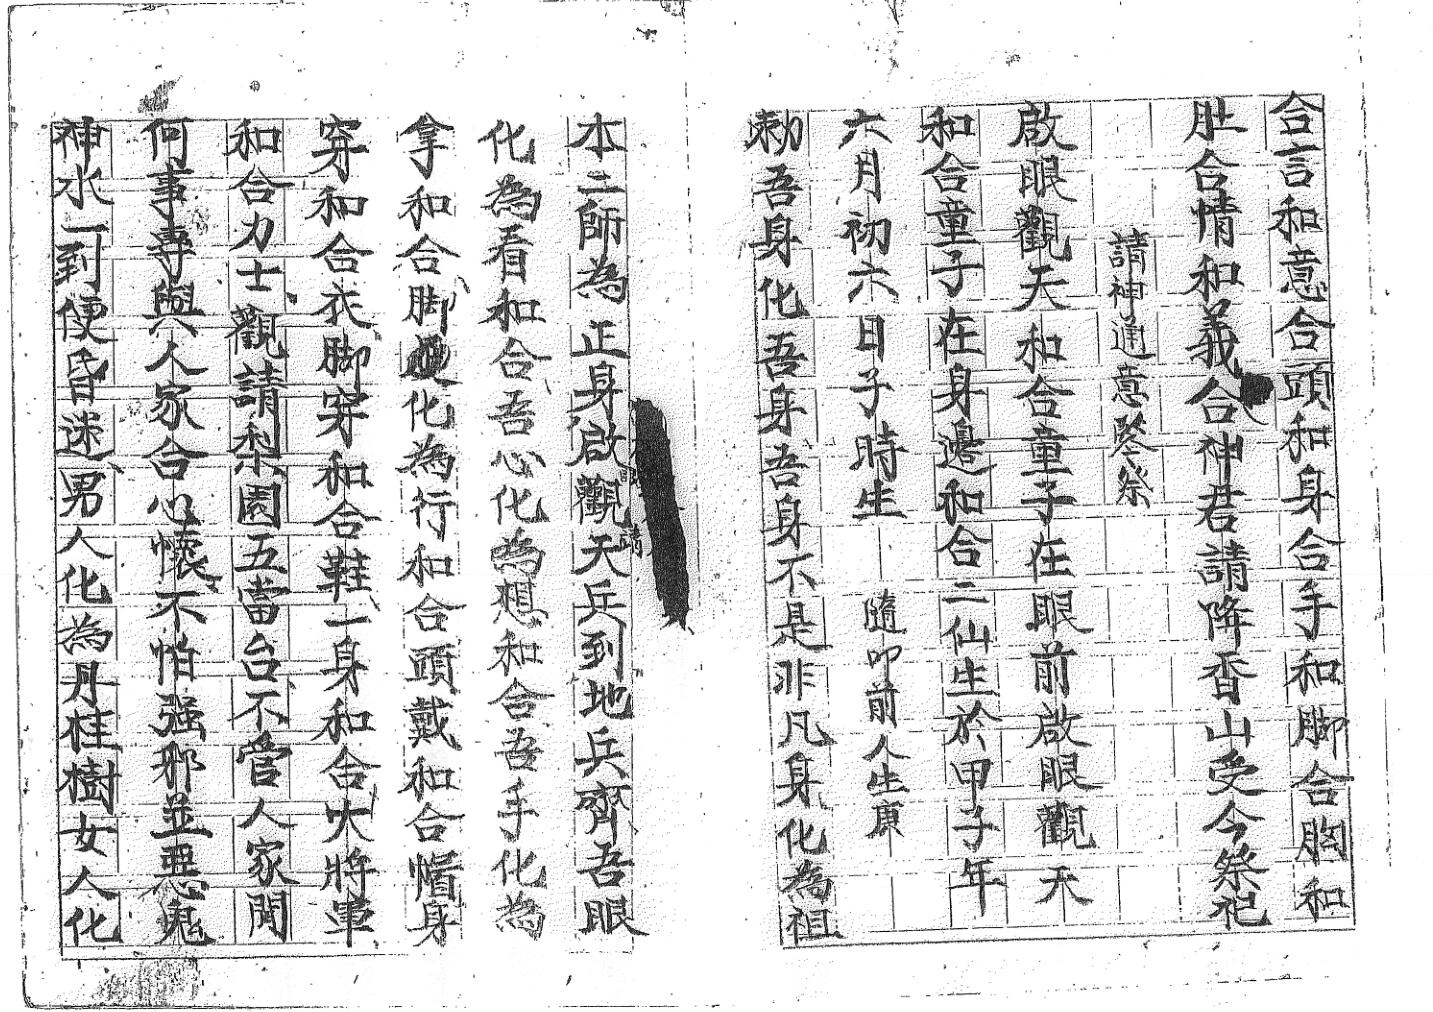 合言和意合頭和身合手和脚合胸和
肚合情和義合神君請降香山受今祭祀
請神通意祭
啟眼觀天和合童子在眼前啟眼觀天
和合童子在身邊和合二仙生於甲子年
六月初六日子時生 隨叩前人生庚
勅吾身化吾身吾身不是非凡身化為祖
本二師為正身啟觀天兵到地兵齊吾眼
化為看和合吾心化為想和合吾手化為
拿和合脚化為行和合頭戴和合帽身
穿和合衣脚穿和合鞋一身和合大將軍
和合力士觀請梨園五當台不管人家閑
何事專與人家合心懷不怕强邪並惡鬼
神水一到便昏迷男人化為丹桂樹女人化